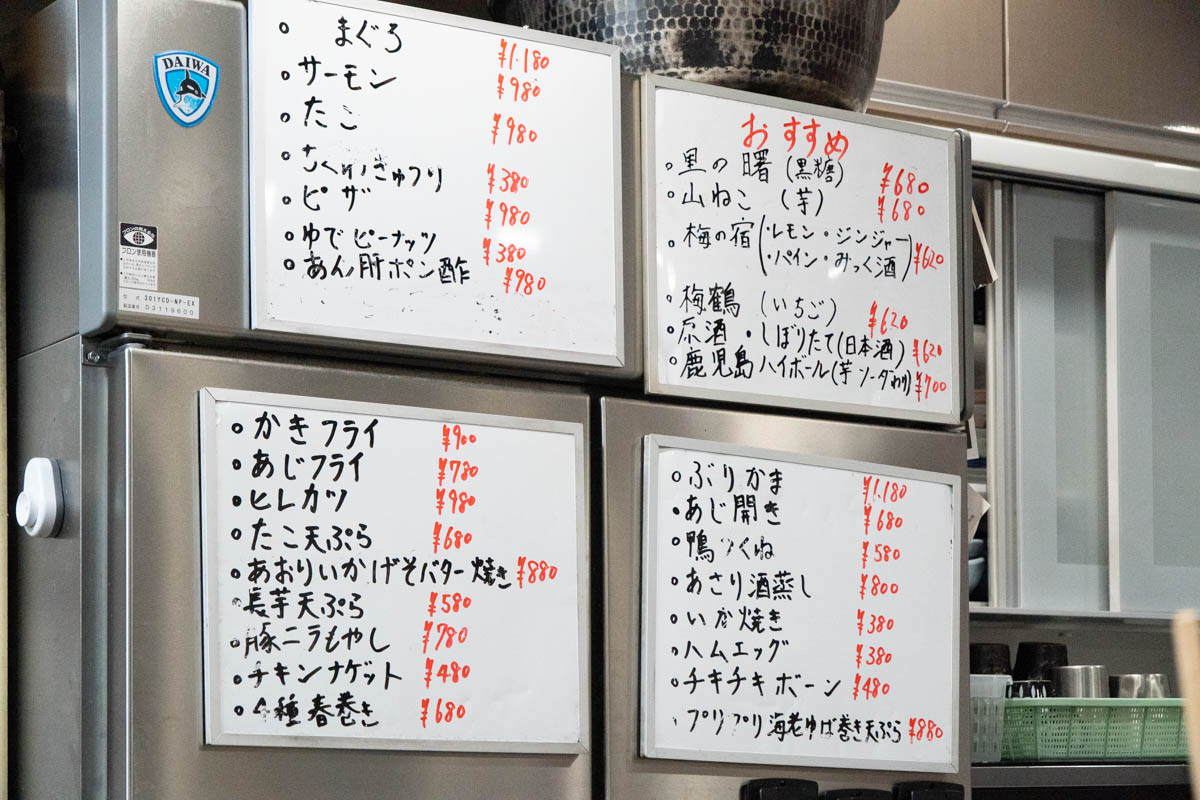 まぐろ ¥1.180
サーモン ¥980
たこ ¥980
ちくわ きゅうり ¥380
ピザ ¥980
ゆでピーナッツ ¥380
あん肝ポン酢 ¥980
DAIWA
フロン使用機器
型式 301YCD-NP-EX
製造番号 03119600
おすすめ
里の曙 (黒糖) ¥680
山ねこ (芋) ¥680
梅の宿 (・レモン・ジンジャー
・パイン・みっく酒) ¥620
梅鶴 (いちご) ¥620
原酒・しぼりたて(日本酒) ¥620
鹿児島ハイボール(芋ソーダわり) ¥700
かきフライ ¥900
あじフライ ¥780
ヒレカツ ¥980
たこ天ぷら ¥680
あおりいかげそバター焼き ¥880
長芋天ぷら ¥580
豚ニラもやし ¥780
チキンナゲット ¥480
種春巻き ¥680
ぶりかま ¥1.180
あじ開き ¥680
鴨つくね ¥580
あさり酒蒸し ¥800
いか焼き ¥380
ハムエッグ ¥380
チキチキボーン ¥480
プリプリ海老ゆば巻き天ぷら ¥880